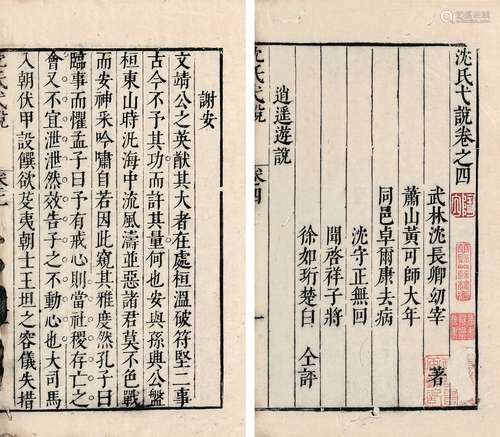 沈氏弋說卷之四
武林沈長卿幼宰 著
蕭山黃可師大年
同邑卓爾康去病
沈守正無回
聞啓祥子將
徐如珩楚白 仝評
逍遙遊說
沈氏弋說
卷四
一
謝安
文靖公之英猷其大者在處桓溫破苻堅二事
古今不予其功而許其量何也安與孫興公盤
桓東山時汎海中流風濤並惡諸君莫不色戰
而安神采吟嘯自若因此窺其雅度然孔子曰
臨事而懼孟子曰予有戒心則當社稷存亡之
會又不宜泄泄然效告子之不動心也大司馬
入朝伏甲設饌欲芟夷朝士王坦之容儀失措